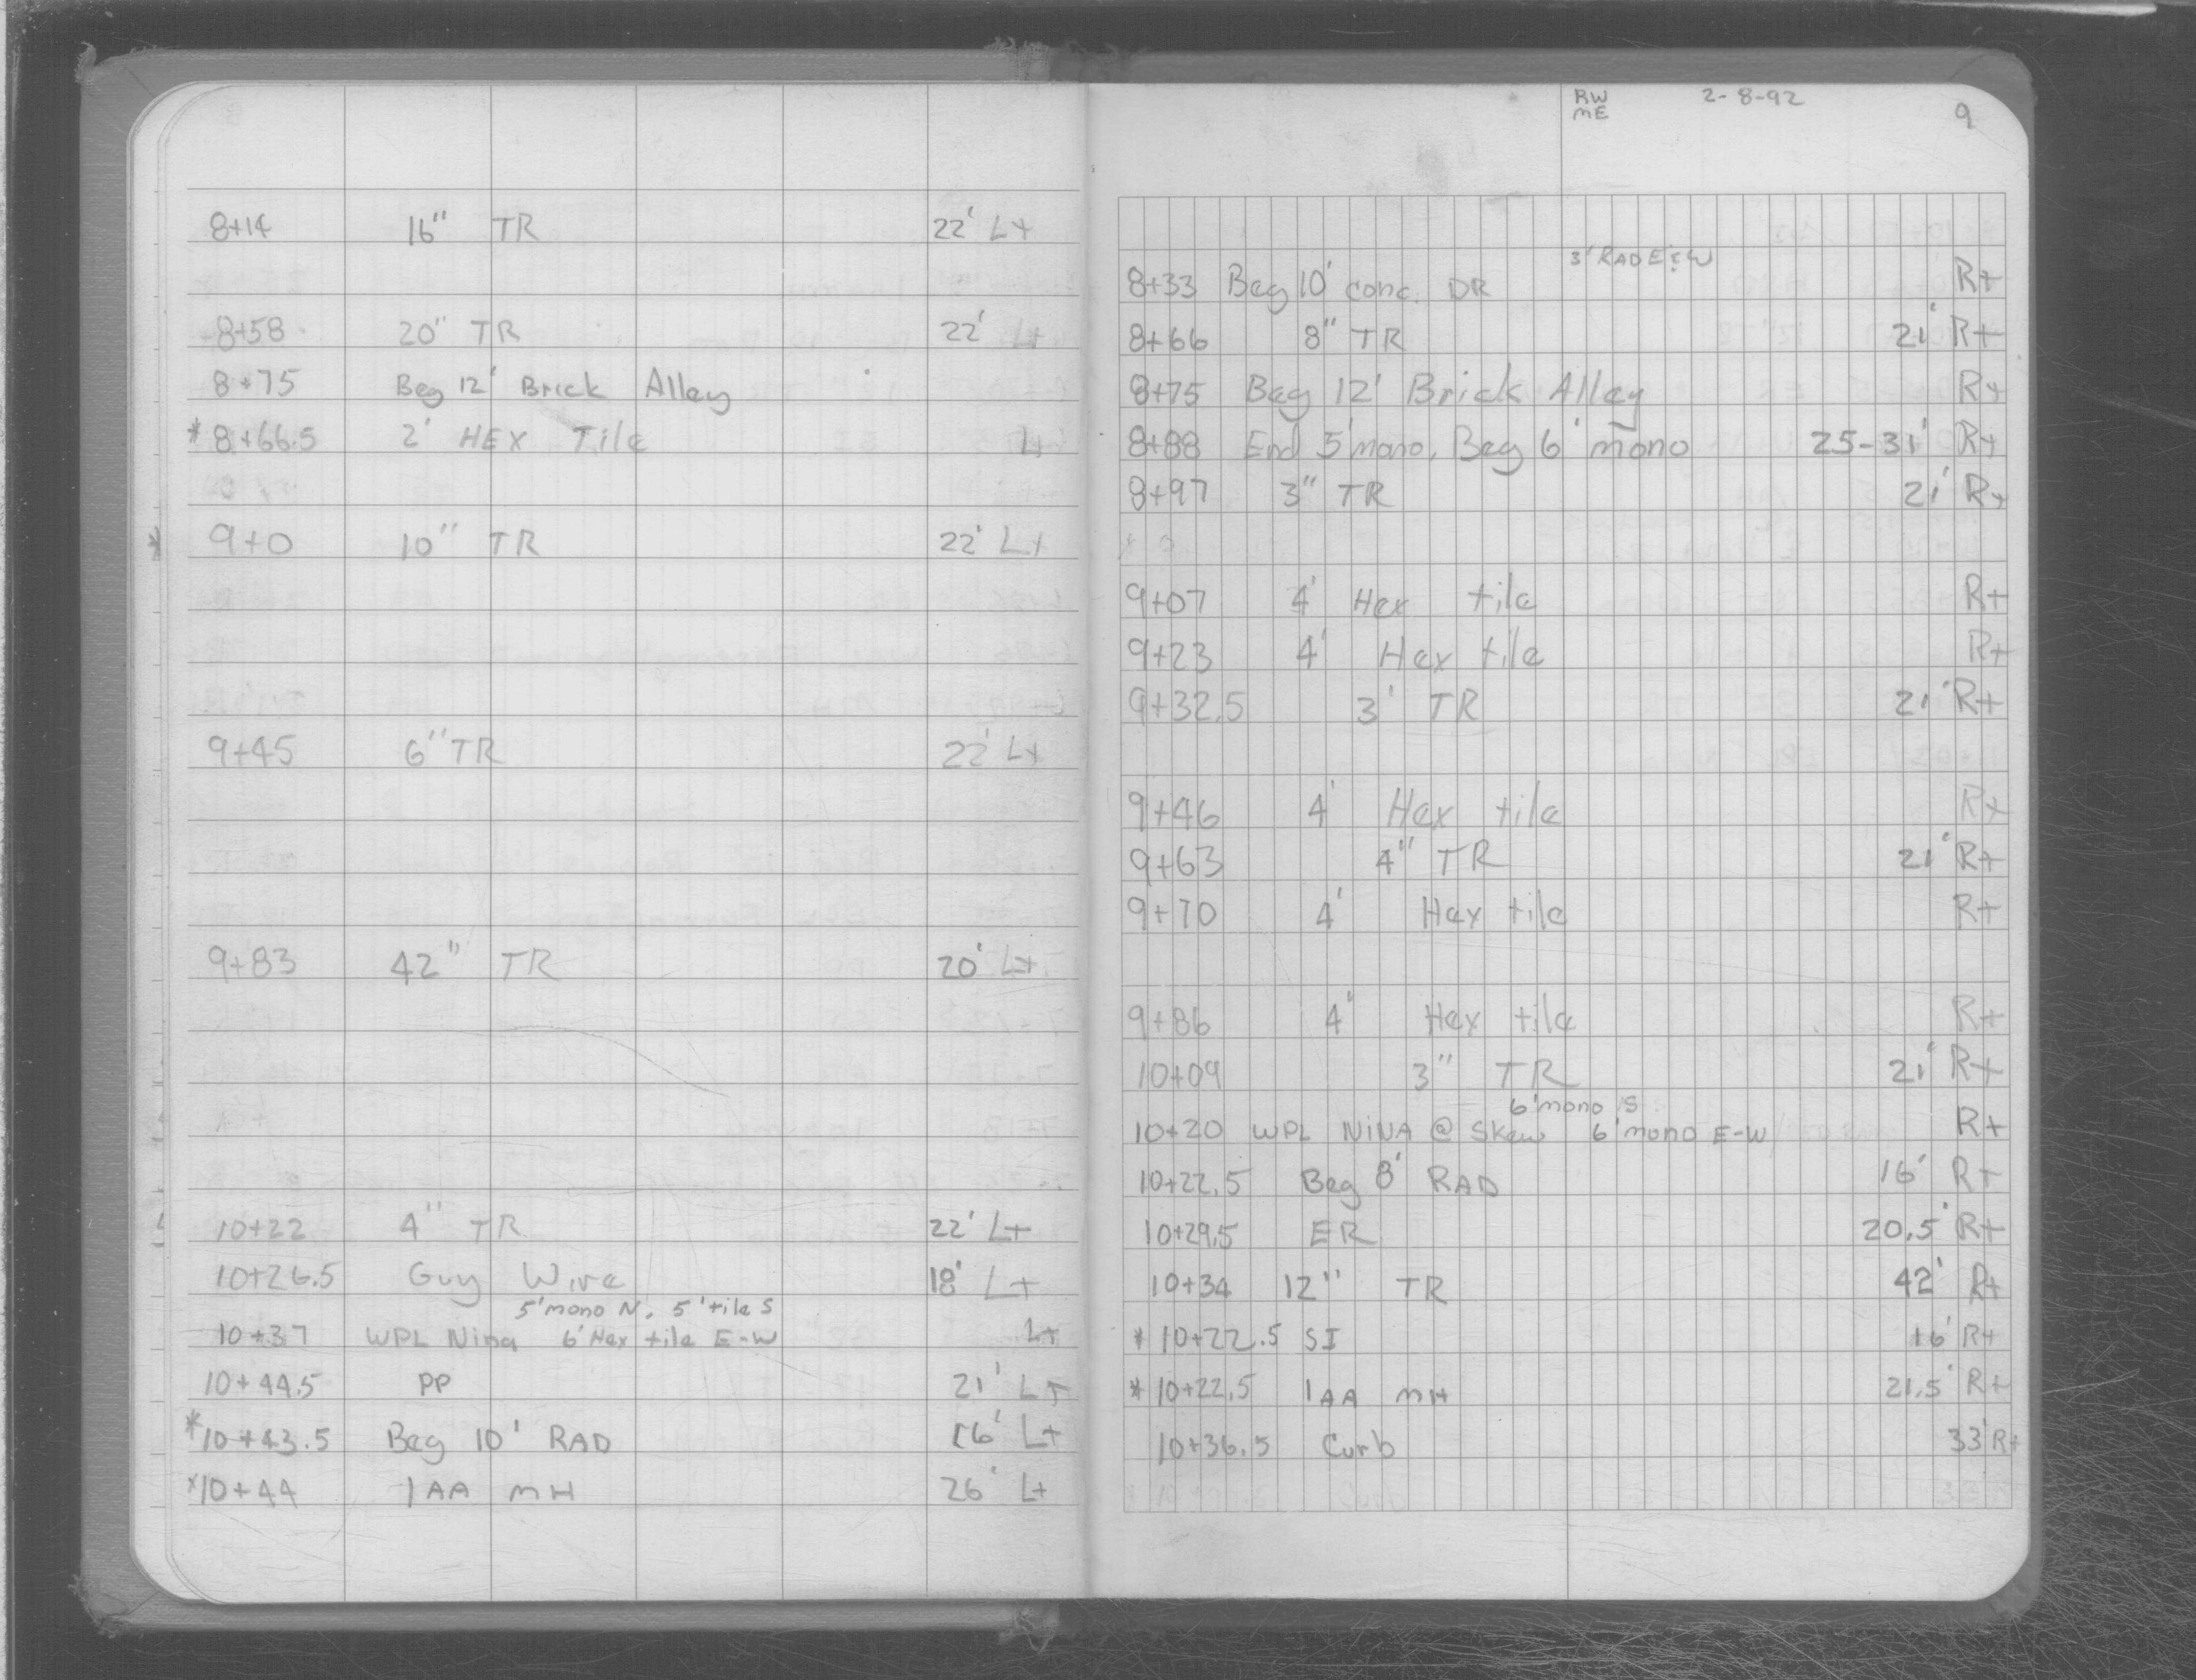 8+14 16" TR 22' Lt
8+58 20" TR 22' Lt
8+75 Beg 12' Brick Alley
* 8+66.5 2' HEX Tile Lt
* 9+0 10" TR 22' Lt
9+45 6" TR 22' Lt
9+83 42" TR 20' Lt
10+22 4" TR 22' Lt
10+26.5 Guy Wire 18' Lt
5' mono N. 5' tile S
10+37 WPL Nina 6' Hex tile E-W Lt
10+44.5 PP 21' Lt
*10+43.5 Beg 10' RAD 16' Lt
*10+44 1AA MH 26' Lt
RW 2-8-92
ME 9
3' RAD E&W
8+33 Beg 10' conc. DR Rt
8+66 8" TR 21' Rt
8+75 Beg 12' Brick Alley Rt
8+88 End 5' mono, Beg 6' mono 25-31' Rt
8+97 3" TR 21' Rt
9+07 4' Hex tile Rt
9+23 4' Hex tile Rt
9+32.5 3' TR 21' Rt
9+46 4' Hex tile Rt
9+63 4" TR 21' Rt
9+70 4' Hex tile Rt
9+86 4' Hex tile Rt
10+09 3" TR 21' Rt
6' mono S
10+20 WPL NINA @ Skew 6' mono E-W Rt
10+22.5 Beg 8' RAD 16' Rt
10+29.5 ER 20.5' Rt
10+34 12" TR 42' Rt
* 10+22.5 SI 16' Rt
* 10+22.5 1AA MH 21.5' Rt
10+36.5 Curb 33' Rt